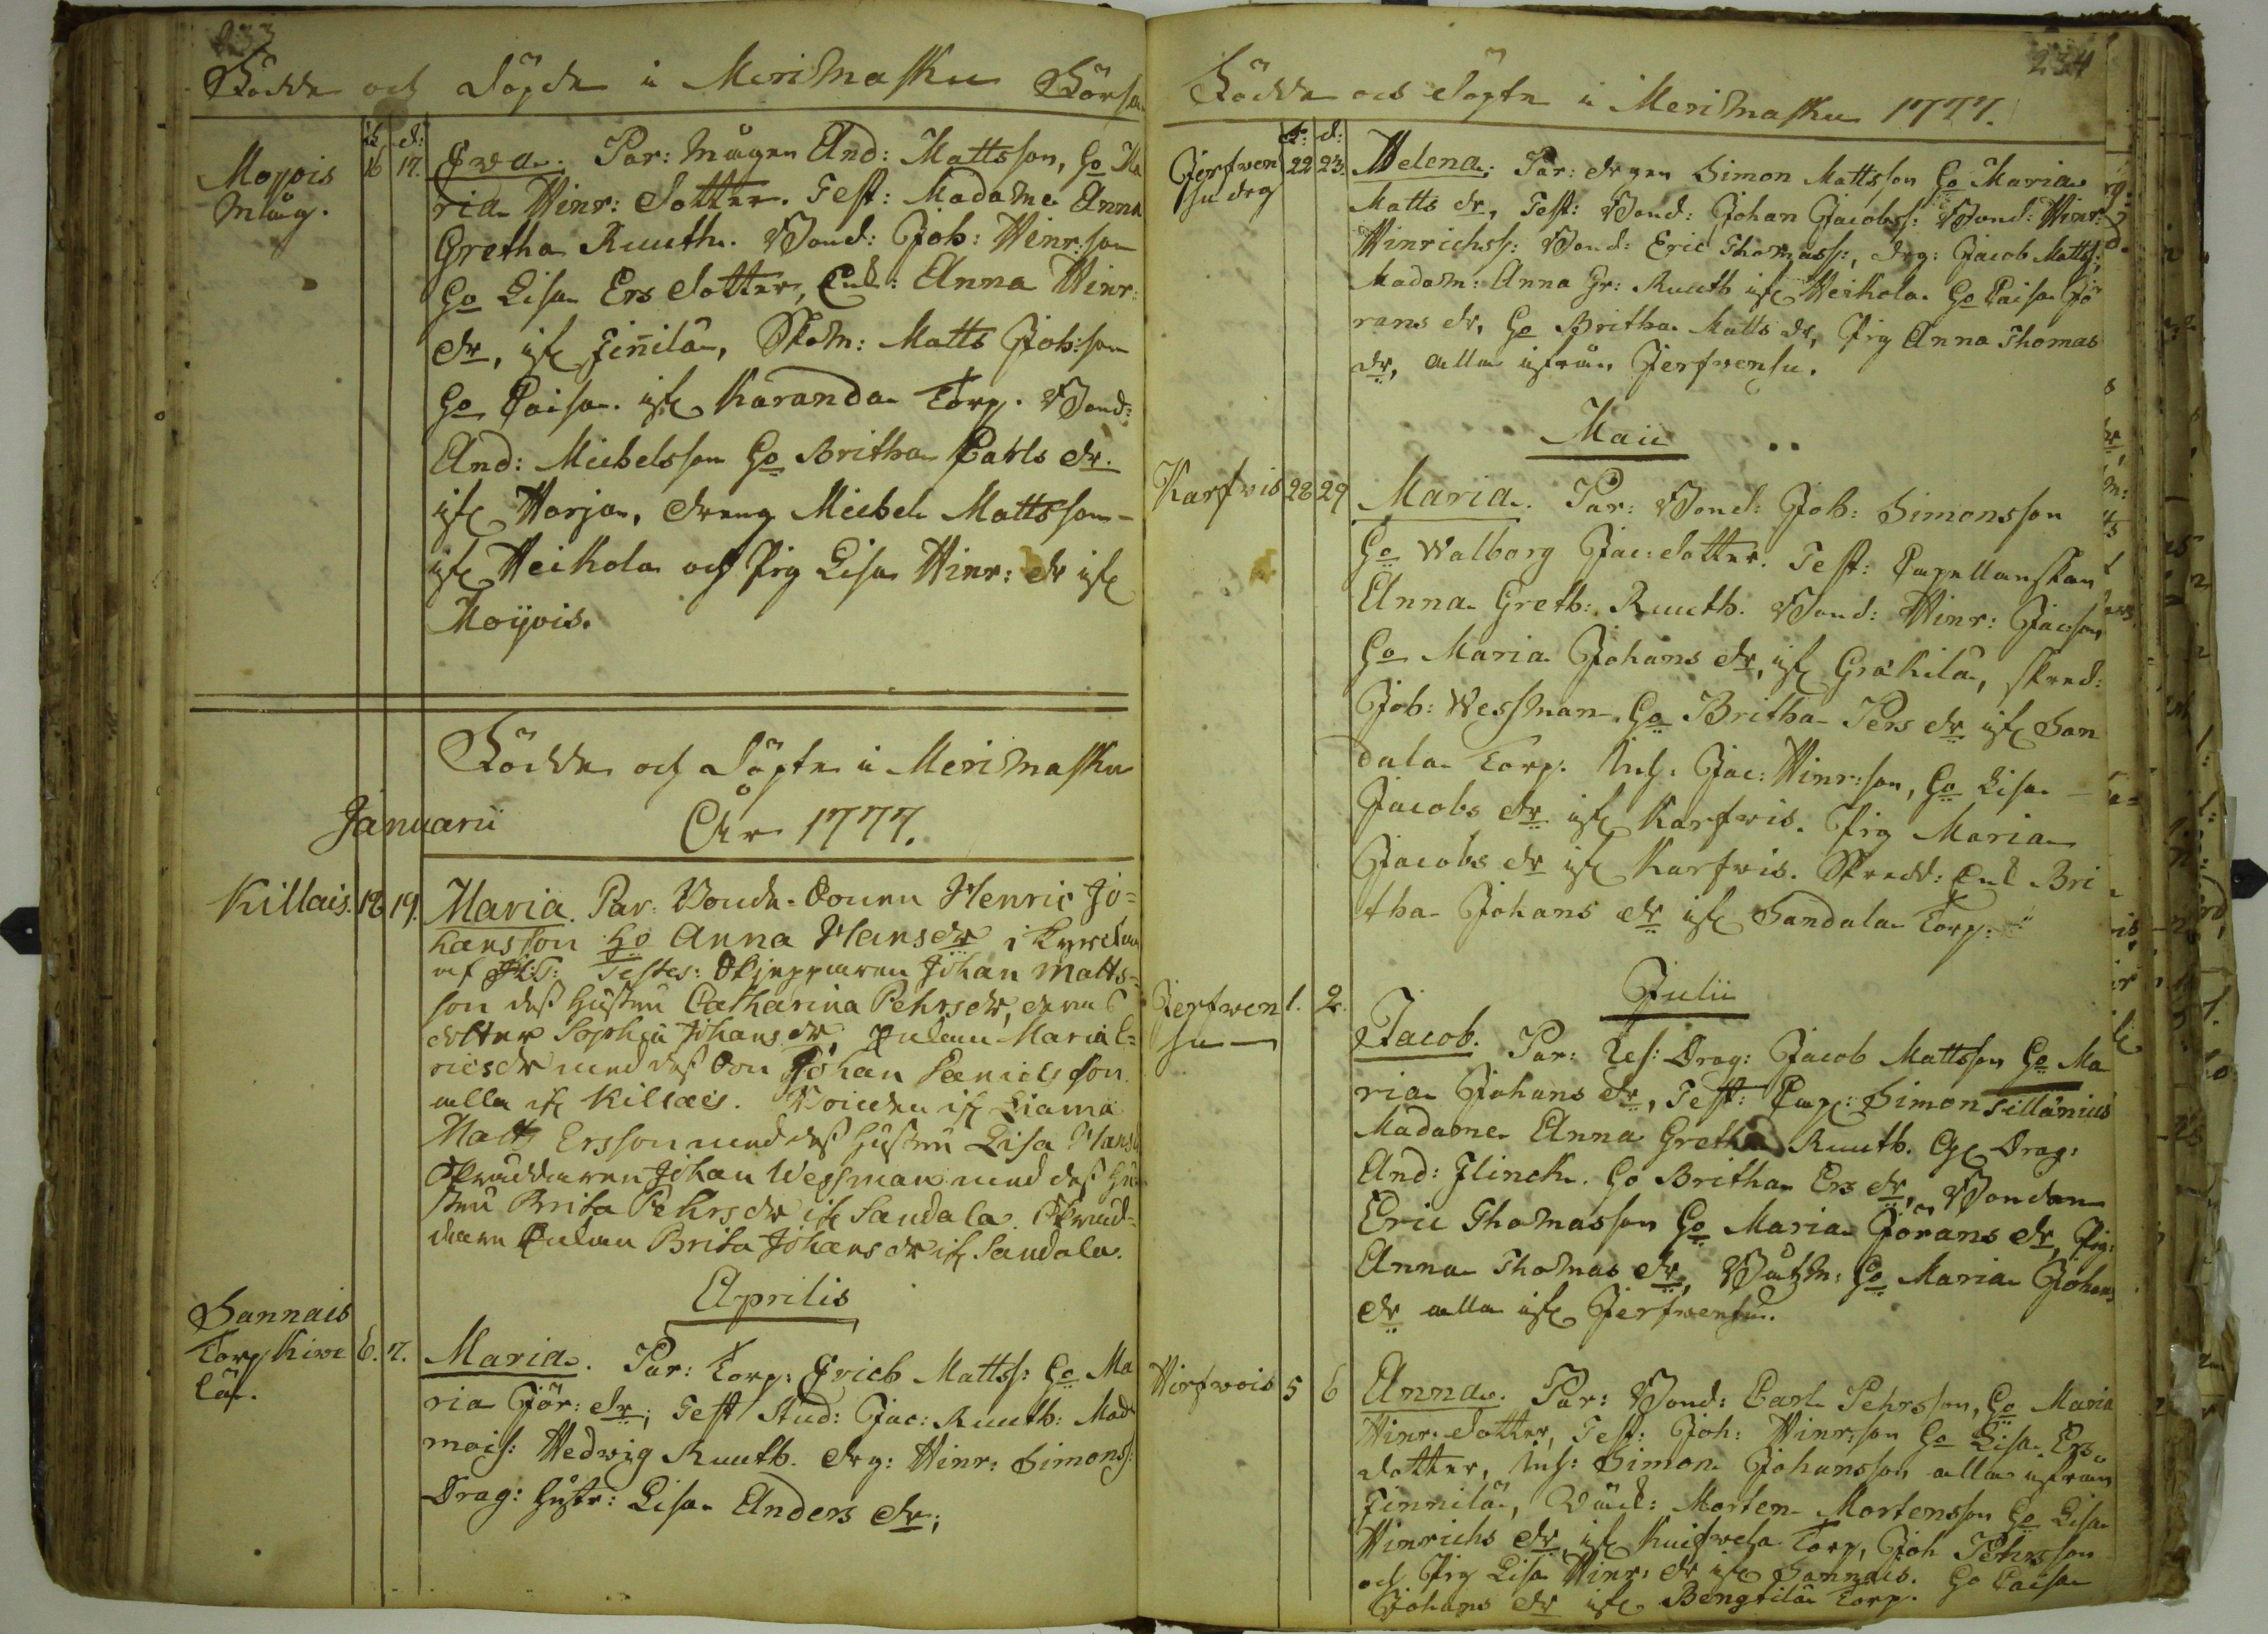 233
Födde och Döpde i Merimasku Försa
f: d:
Moijois Måg. 16 17. Ewa. Par: Mågen And: Mattsson, Ho Ma
ria Hinr: Dotter. Test: Madame Anna
Gretha Ruuth. Bond: Joh: Hinr:son
Ho Lisa Ers Dotter, Enk: Anna Hinr:
dr, ifr Finnilä, Skom: Matts Joh:son
Ho Caisa. ifr Karanda Torp. Bond:
And: Michelsson Ho Britha Carls dr.
ifr Harja, dreng Michel Mattsson
ifr Heikola och Pig Lisa Hinr: dr ifr
Moijois.
Födde och Döpte i Merimasku
Januarii
År 1777.
Killais. 18 19. Maria. Par. Bonde-Sonen Henric Jo=
hansson Ho Anna Hansdr i
af Testes: Skepparen Johan Matts=
son dess Hustru Catharina Pehrsdr, deras
dotter Sophia Johansdr, Enkan Maria E=
ricsdr med dess Son Johan Danielsson
alla ifr Killais. Bonden ifr
Matts Ersson med dess Hustru Lisa Hansdr
Skräddaren Johan Wessman med dess Hu
stru Brita Pehrsdr ifr Sandala. Skräd=
dare Enkan Brita Johansdr ifr Sandala.
Aprilis
Sannais
Torp Kire
lä. 6. 7. Maria. Par: Torp: Erich Matts: Ho Ma
ria Jör: dr; Test Stud: Jac: Ruuth: Mad
mois: Hedwig Ruuth. drg: Hinr: Simons:
Drag: Hustr: Lisa Anders dr;
234
Födde och Döpte i Merimasku 1777.
f: d:
Jerfwen
su drg 22 23. Helena. Par: drgen Simon Mattsson Ho Maria
Matts dr, Test: Bond: Johan Jacobss: Bond: Hinr:
Hinrichss: Bond: Eric Thomass:, drg: Jacob Matts:,
Madam: Anna Gr: Ruuth ifr Heikola Ho Caisa Jö
rans dr, Ho Britha Matts dr, Pig Anna Thomas
dr, alla ifrån Jerfwensu.
Maii
Karfwis 28 29 Maria. Par: Bond: Joh: Simonsson
Ho Walborg Jac: dotter. Test: Capellanskan
Anna Greth: Ruuth. Bond: Hinr: Jac:son
Ho Maria Johans dr, ifr Grākila, skred:
Joh: Wessman Ho Britha Pers dr ifr San
dala Torp. Inh: Jac: Hinr:son, Ho Lisa
Jacobs dr ifr Karfwis. Pig Maria
Jacobs dr ifr Karfwis. Skredd: Enk Bri
tha Johans dr ifr Sandala Torp.
Julii
Jerfwen
su 1. 2. Jacob. Par: Res: Drag: Jacob Mattsson Ho Ma
ria Johans dr, Test: Cap: Simon Tillänius
Madame Anna Gretha Ruuth. Drag:
And: Flinck. Ho Britha Ers dr, Bonden
Eric Thomasson Ho Maria Jörans dr, Pig:
Anna Thomas dr, Båtzm: Ho Maria Johans
dr alla ifr Jerfwensu.
Hirfwois 5 6 Anna. Par: Bond: Carl Pehrsson, Ho Maria
Hinr: dotter, Test: Joh: Hinr:son Ho Lisa Ers
dotter, Inh: Simon Johansson alla ifrån
Finnilä, Morten Mortensson Ho Lisa
Hinrichs dr, ifr Torp, Joh Pehrsson
och Pig Lisa Hinr: dr ifr Sannais. Ho Caisa
Johans dr ifr Bengtilä Torp.